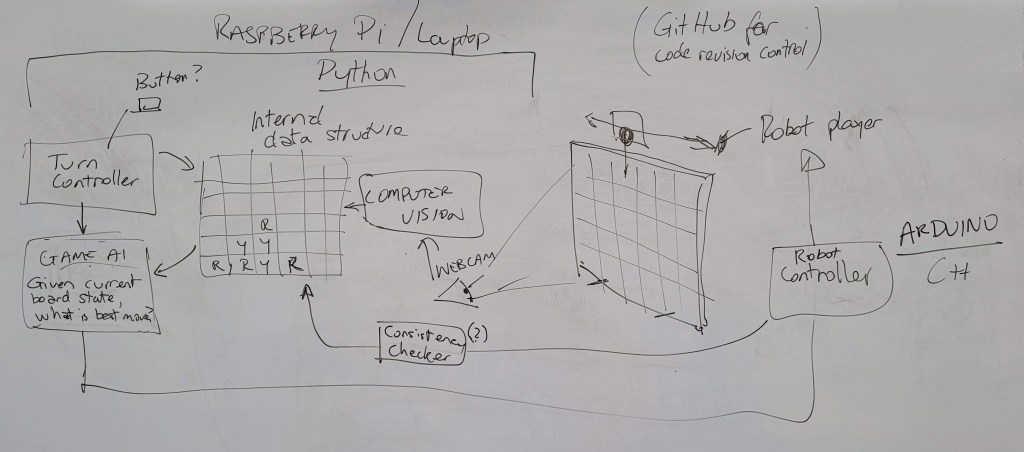 RASPBERRY Pi / Laptop
Python
(GitHub for
code revision control)
Button?
Internal
data structure
Robot player
Turn
Controller
COMPUTER
VISION
R
Y Y
R R Y R
WEBCAM
GAME AI
Given current
board state,
what is best move?
Robot
Controller
ARDUINO
C++
Consistency (?)
Checker